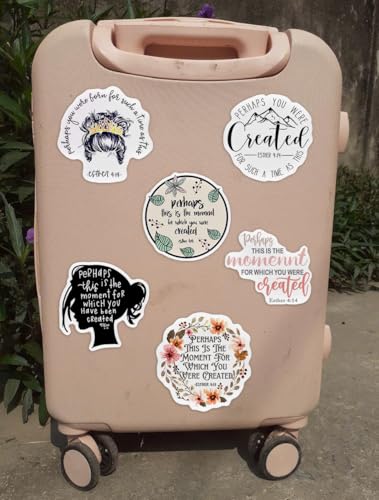 Perhaps you were born for such a time as this
ESTHER 4:14
PERHAPS YOU WERE
Created
ESTHER 4:14
FOR SUCH A TIME AS THIS
perhaps
this is the moment
for which you were
created
Perhaps
THIS IS THE
momennt
FOR WHICH YOU WERE
created
Esther 4:14
PERHAPS
this is the
moment for
which you
Have been
created
PERHAPS
THIS IS THE
MOMENT FOR
WHICH YOU
WERE CREATED!
ESTHER 4:14